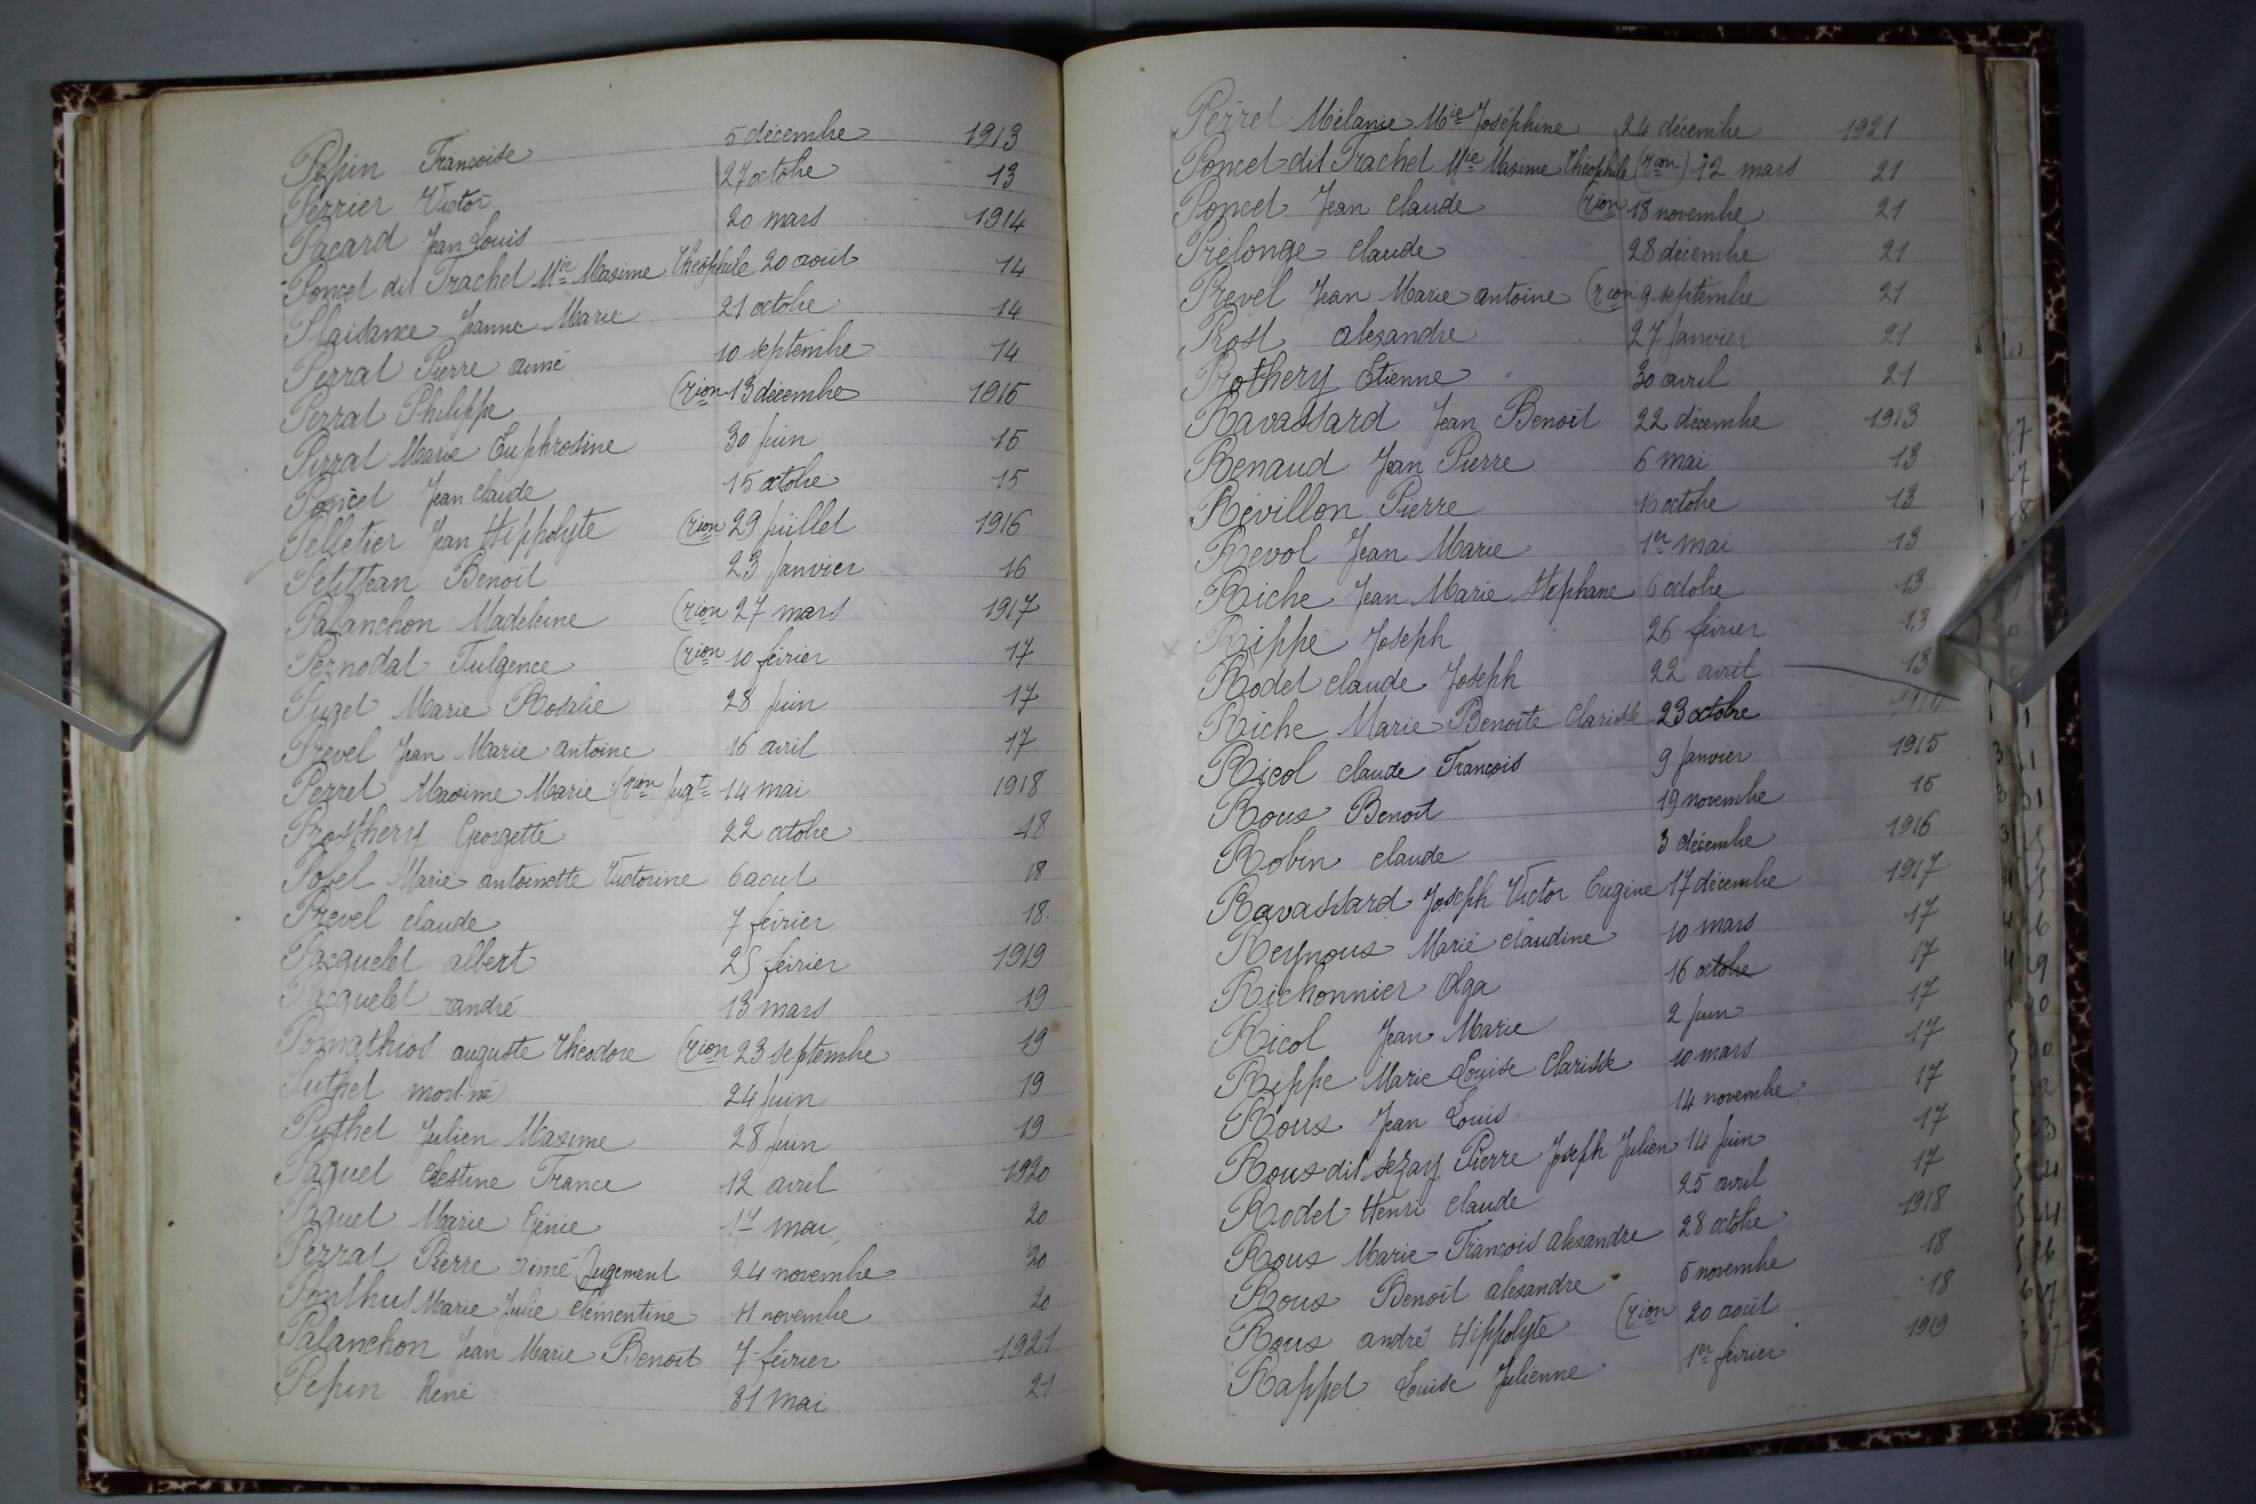 Pepin Françoise 5 décembre 1913
Perrier Victor 27 octobre 13
Pacard Jean Louis 20 mars 1914
Poncet dit Trachet Mie Maxime Théophile 20 août 14
Plaisance Jeanne Marie 21 octobre 14
Perrat Pierre aimé 10 septembre 14
Perrat Philippe (rion 13 décembre 1915
Perrat Marie Euphrosine 30 juin 15
Poncet Jean claude 15 octobre 15
Pelletier Jean Hippolyte (rion 29 juillet 1916
Petitjean Benoît 23 janvier 16
Palanchon Madeleine (rion 27 mars 1917
Pernodat Fulgence (rion 10 février 17
Puget Marie Rosalie 28 juin 17
Prevel Jean Marie antoine 16 avril 17
Perret Maxime Marie (rion jugt 14 mai 1918
Prosthery Georgette 22 octobre 18
Pobel Marie antoinette Victorine 6 aout 18
Prevel claude 7 février 18
Pacquelet albert 25 février 1919
Pacquelet andré 13 mars 19
Pomathios auguste théodore (rion 23 septembre 19
Puthet mort-né 24 juin 19
Puthet Julien Maxime 28 juin 19
Paquet Célestine France 12 avril 1920
Paquet Marie Génie 17 mai 20
Perrat Pierre aimé (Jugement 24 novembre 20
Ponthus Marie Julie clémentine 11 novembre 20
Palanchon Jean Marie Benoît 7 février 1921
Pepin René 31 mai 21
Perret Mélanie Mie Joséphine 24 décembre 1921
Poncet dit Trachet Mie Maxime Théophile (rion) 12 mars 21
Poncet Jean claude (rion 18 novembre 21
Prélonge claude 28 décembre 21
Prevel Jean Marie antoine (rion 9 septembre 21
Prost alexandre 27 janvier 21
Prothery Etienne 30 avril 21
Ravassard Jean Benoît 22 décembre 1913
Renaud Jean Pierre 6 mai 13
Révillon Pierre 16 octobre 13
Revol Jean Marie 1er mai 13
Riche Jean Marie Stephane 6 octobre 13
Rippe Joseph 26 février 13
Rodet claude Joseph 22 avril 13
Riche Marie Benoîte Clarisse 23 octobre 1914
Ricol claude François 9 janvier 1915
Roux Benoît 19 novembre 15
Robin claude 3 décembre 1916
Ravassard Joseph Victor Eugène 17 décembre 1917
Reynoux Marie claudine 10 mars 17
Richonnier Olga 16 octobre 17
Ricol Jean Marie 2 juin 17
Rippe Marie Louise Clarisse 10 mars 17
Roux Jean Louis 14 novembre 17
Roux dit Sezay Pierre Joseph Julien 14 juin 17
Rodet Henri claude 25 avril 17
Roux Marie François alexandre 28 octobre 1918
Roux Benoît alexandre 5 novembre 18
Roux andré Hippolyte (rion 20 août 18
Rappet Louise Julienne 1er février 1919